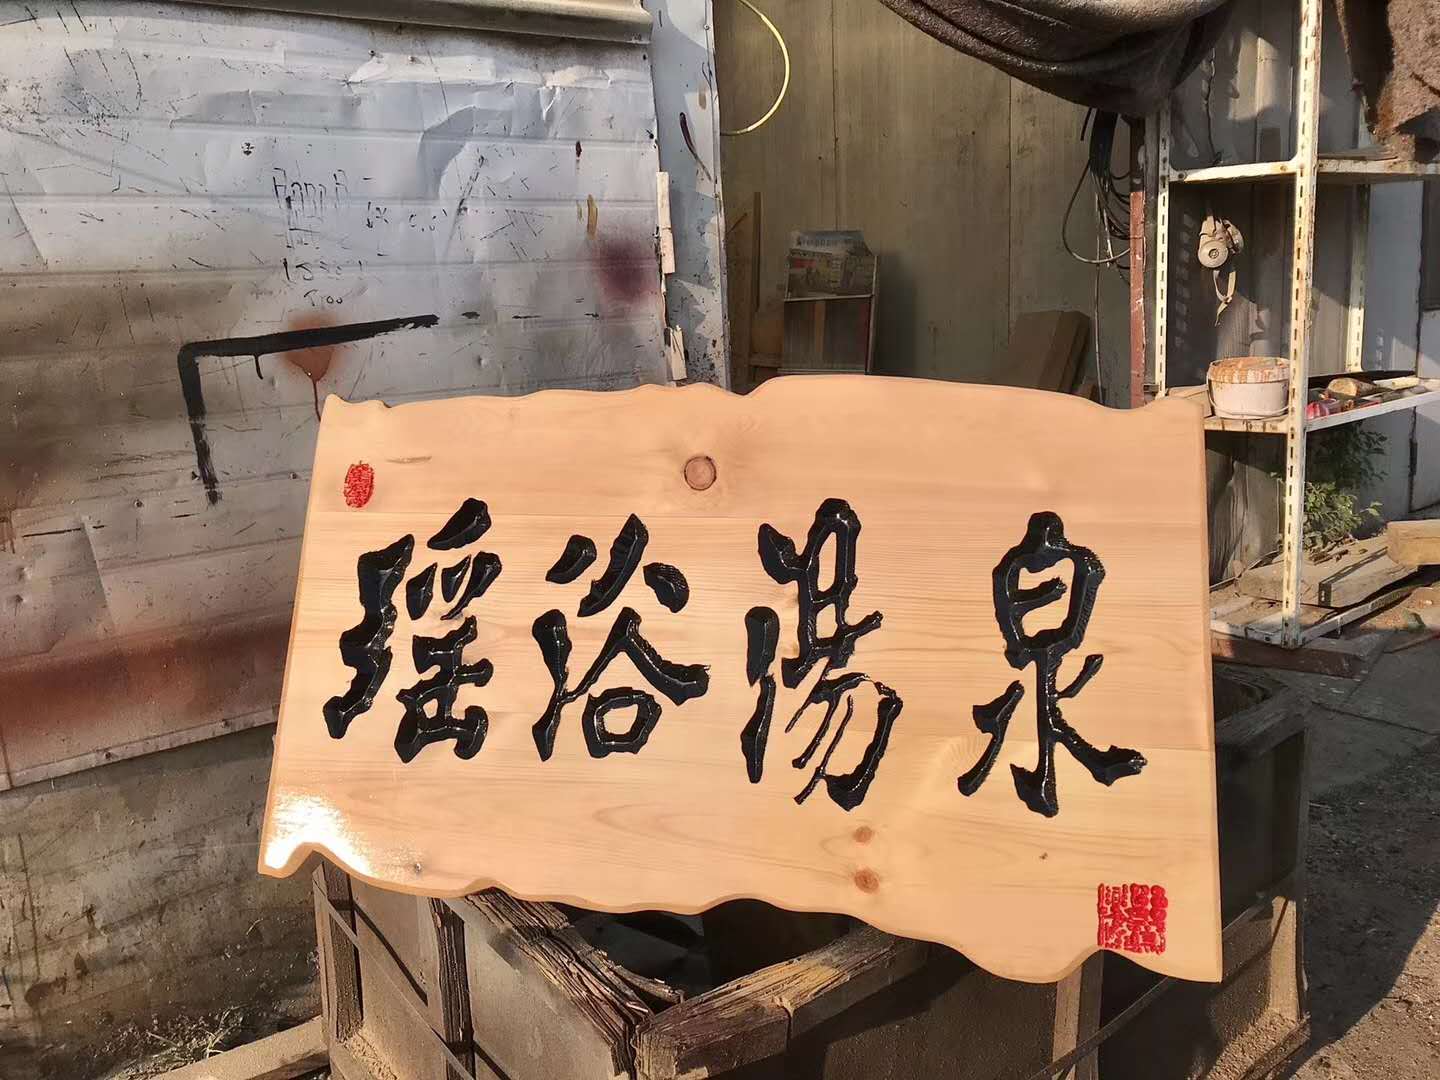 瑶浴湯泉